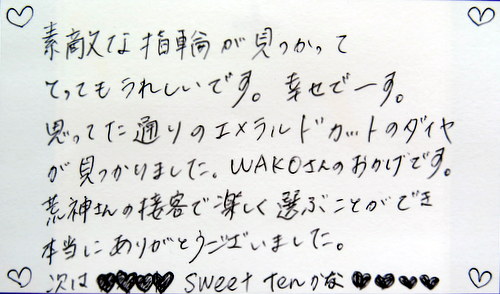 素敵な指輪が見つかって
とってもうれしいです。幸せでーす。
思ってた通りのエメラルドカットのダイヤ
が見つかりました。WAKOさんのおかげです。
荒神さんの接客で楽しく選ぶことができ
本当にありがとうございました。
次は♥♥♥♥ sweet tenかな♥♥♥♥